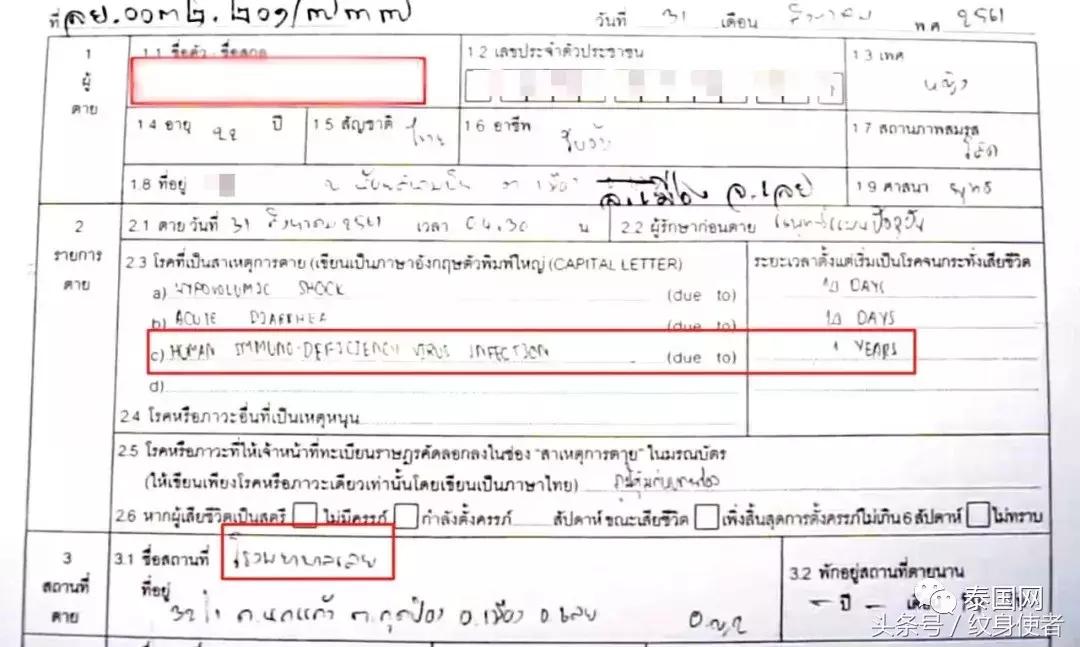 ที่ ลย. ๐๐๓๒.๒๐๑/๗๓๓๗ วันที่ 31 เดือน สิงหาคม พศ 2561
1 ผู้ตาย 1.1 ชื่อตัว - ชื่อสกุล 1.2 เลขประจำตัวประชาชน 1 3 เพศ หญิง
1 4 อายุ 22 ปี 1 5 สัญชาติ ไทย 1 6 อาชีพ รับจ้าง 1 7 สถานภาพสมรส โสด
1.8 ที่อยู่ อ.เมือง จ.เลย 1 9 ศาสนา พุทธ
2 รายการตาย 2.1 ตาย วันที่ 31 สิงหาคม 2561 เวลา 04.30 น 2.2 ผู้รักษาก่อนตาย แพทย์แผนปัจจุบัน
2.3 โรคที่เป็นสาเหตุการตาย (เขียนเป็นภาษาอังกฤษตัวพิมพ์ใหญ่ (CAPITAL LETTER) ระยะเวลาตั้งแต่เริ่มเป็นโรคจนกระทั่งเสียชีวิต
a) HYPOVOLUMIC SHOCK (due to) 10 DAYS
b) ACUTE DIARRHEA (due to) 10 DAYS
c) HUMAN IMMUNO-DEFICIENCY VIRUS INFECTION (due to) 1 YEARS
d)
2.4 โรคหรือภาวะอื่นที่เป็นเหตุหนุน
2.5 โรคหรือภาวะที่ให้เจ้าหน้าที่ทะเบียนราษฎรคัดลอกลงในช่อง "สาเหตุการตาย" ในมรณบัตร
(ให้เขียนเพียงโรคหรือภาวะเดียวเท่านั้นโดยเขียนเป็นภาษาไทย) ภูมิคุ้มกันบกพร่อง
2.6 หากผู้เสียชีวิตเป็นสตรี ไม่มีครรภ์ กำลังตั้งครรภ์ สัปดาห์ ขณะเสียชีวิต เพิ่งสิ้นสุดการตั้งครรภ์ไม่เกิน 6 สัปดาห์ ไม่ทราบ
3 สถานที่ตาย 3.1 ชื่อสถานที่ โรงพยาบาลเลย 3.2 พักอยู่สถานที่ตายนาน
ที่อยู่ ต.กุดป่อง อ.เมือง จ.เลย ปี
泰国网
头条号 / 纹身使者